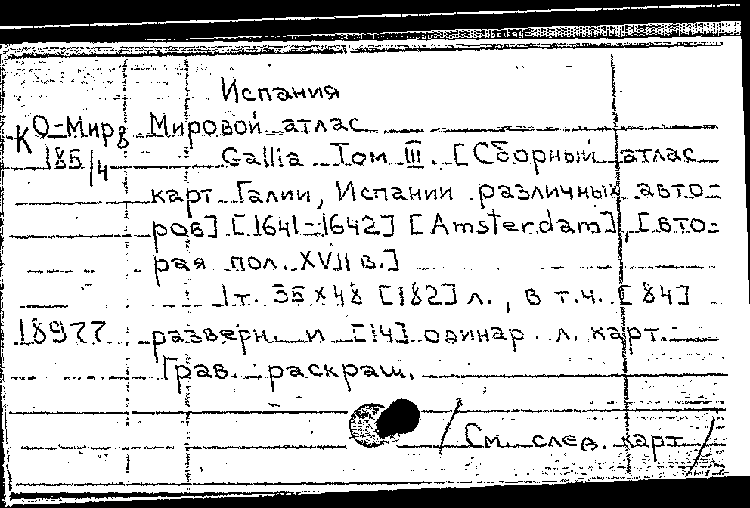 Испания
К О-Мир8 Мировой атлас
185/4 Gallia Том III. [Сборный атлас
карт Галии, Испании различных авто-
ров] [1641-1642] [Amsterdam], [вто-
рая пол. XVII в.]
1 т. 35 х 48 [182] л., в т.ч. [84]
18977 разверн. и [14] одинар. л. карт.
Грав. раскраш.
/См. след. карт./